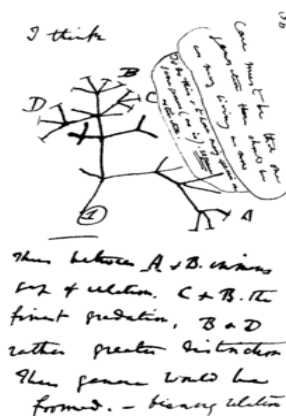 I think
B
D
C
A
1
Case must be that one
generation then should be
as many living as now
To do this & to have many species in
same genus (as is). requires
extinction
Thus between A & B. immens
gap of relation. C & B. the
finest gradation, B & D
rather greater distinction
Thus genera would be
formed. — bearing relation